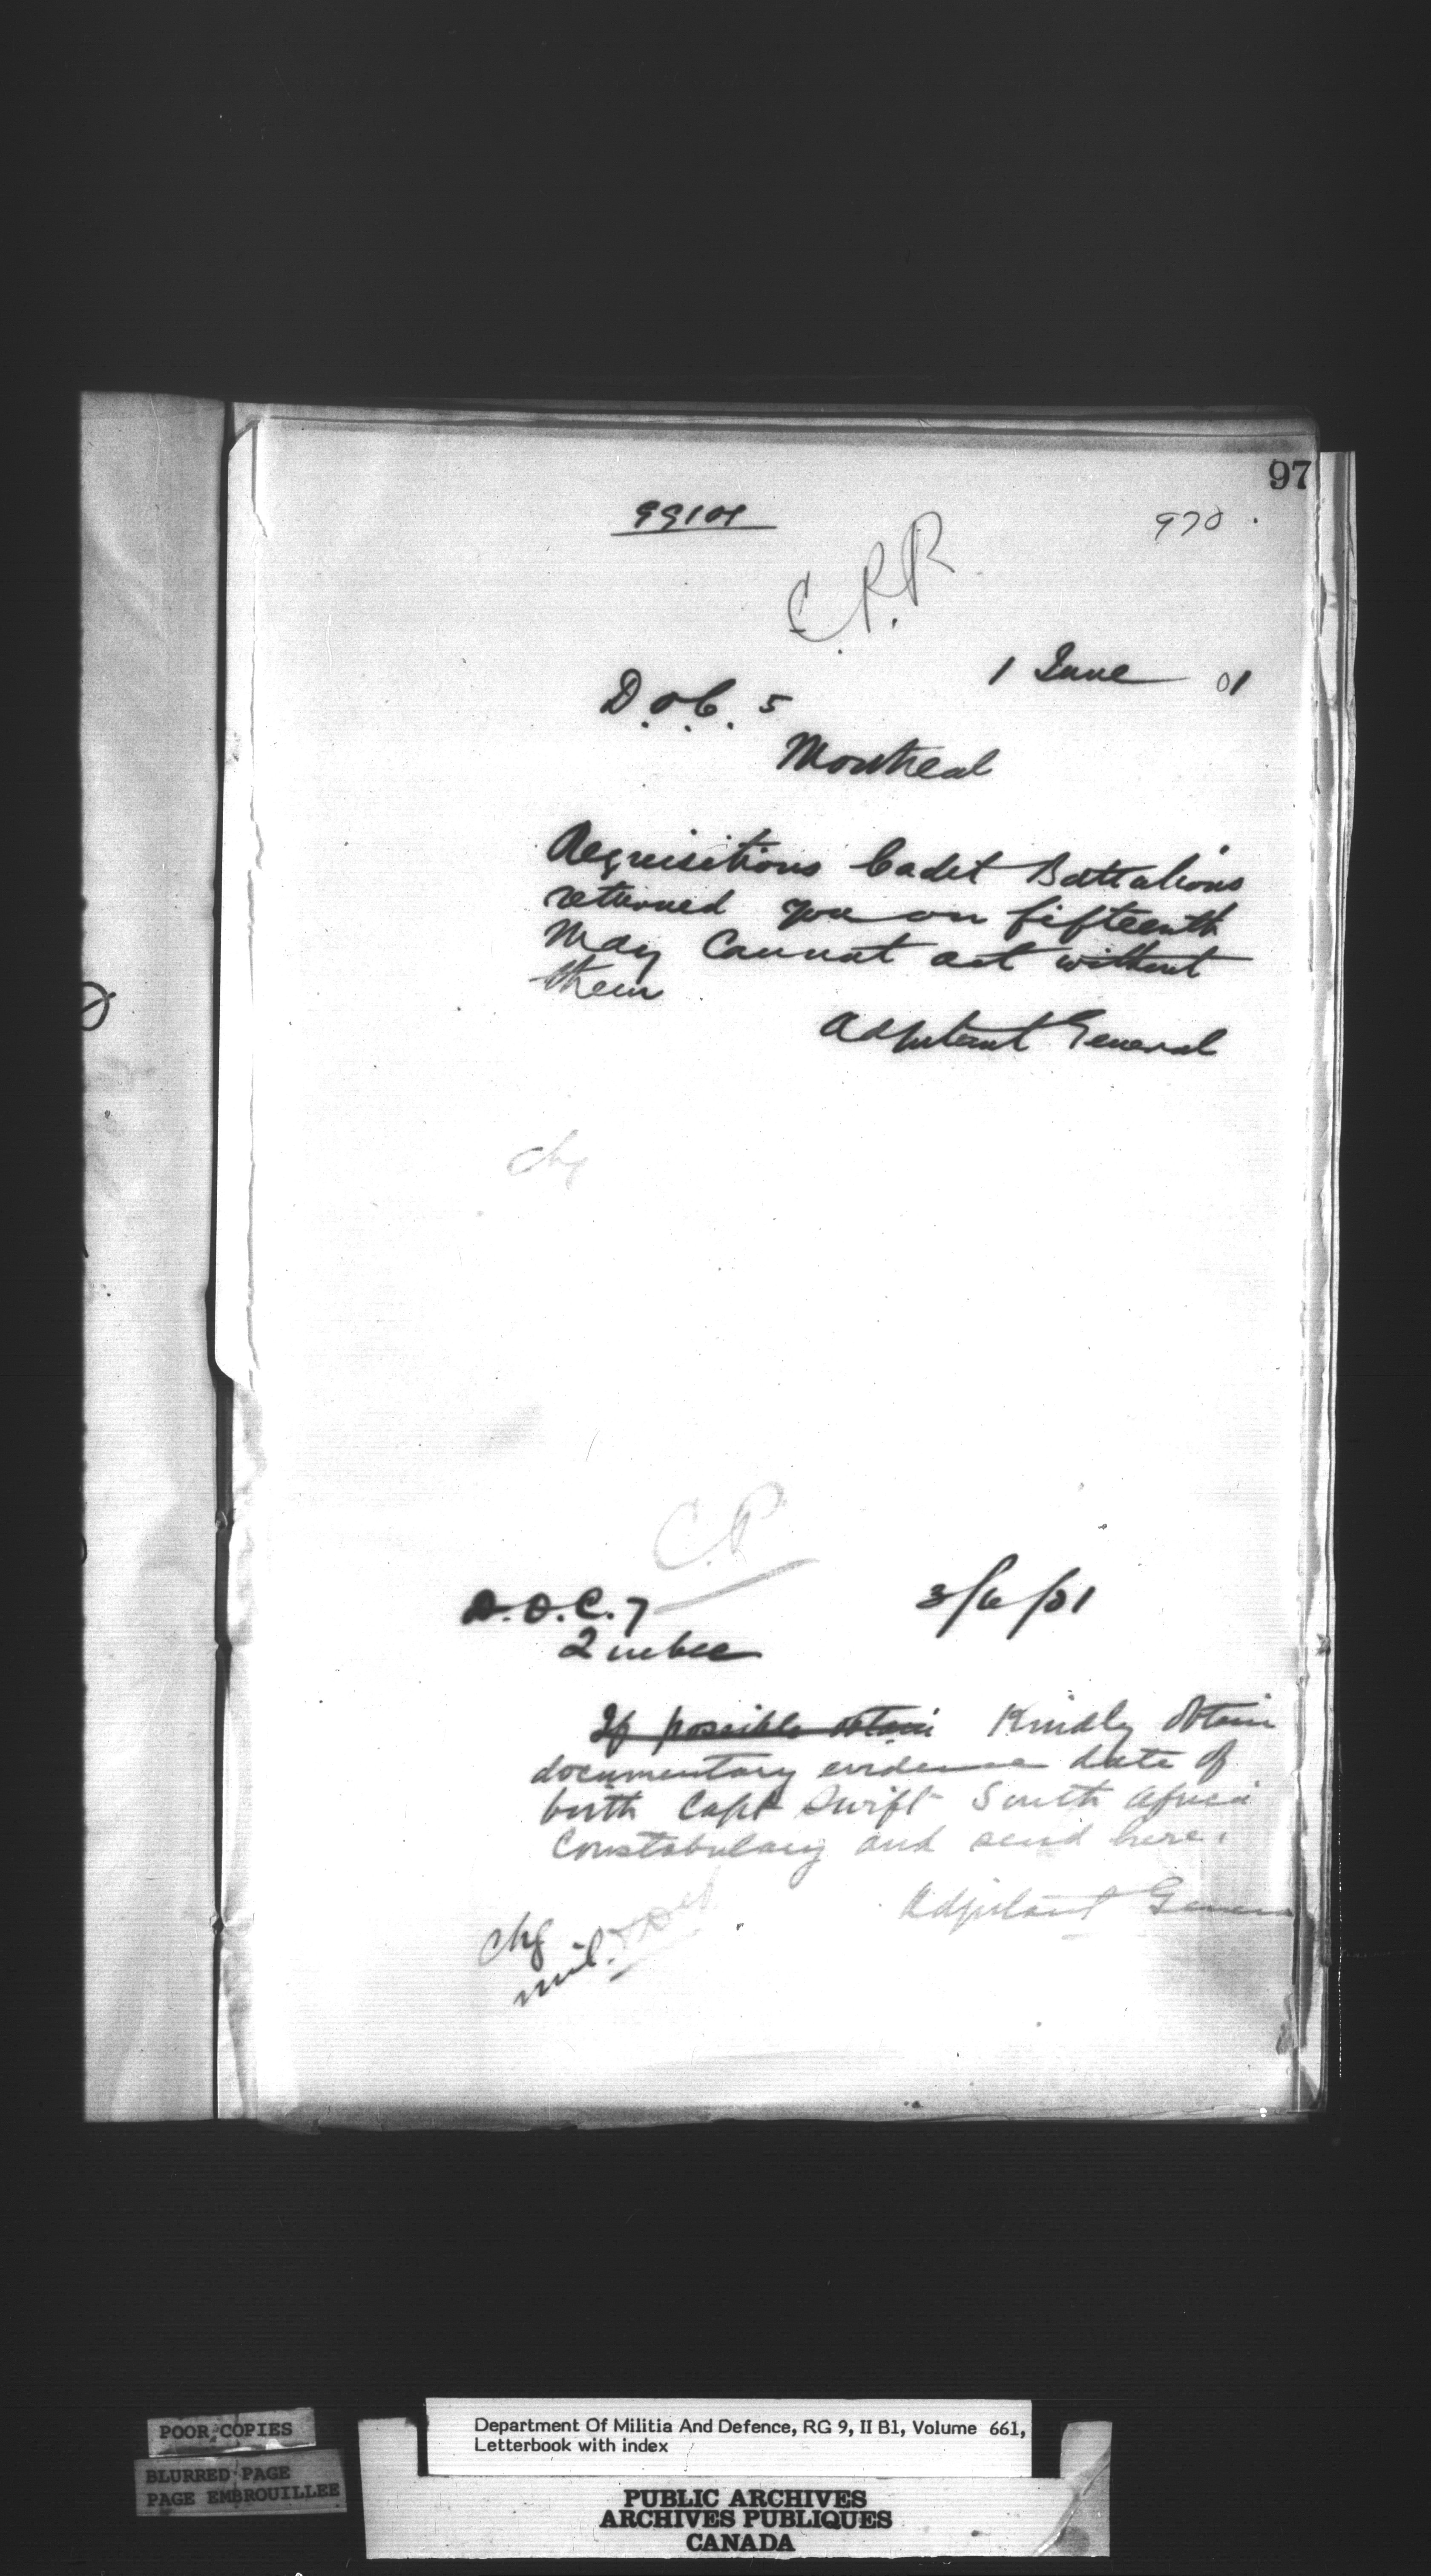 97
99101
970
C.P.R
1 June 01
D.O.C. 5
Montreal
Requisitions Cadet Battalions
returned you on fifteenth
May Cannot act without
them
Adjutant General
chg
C.P.
D.O.C. 7
3/6/01
Quebec
If possible obtain Kindly obtain
documentary evidence date of
birth Capt Swift South Africa
Constabulary and send here.
Adjutant General
chg
mil.
POOR COPIES
BLURRED PAGE
PAGE EMBROUILLEE
Department Of Militia And Defence, RG 9, II B1, Volume 661,
Letterbook with index
PUBLIC ARCHIVES
ARCHIVES PUBLIQUES
CANADA